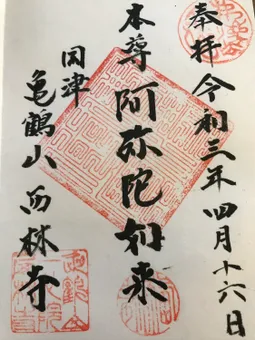 奉拝 令和三年四月十六日
本尊 阿弥陀如来
岡津
亀鶴山 西林寺